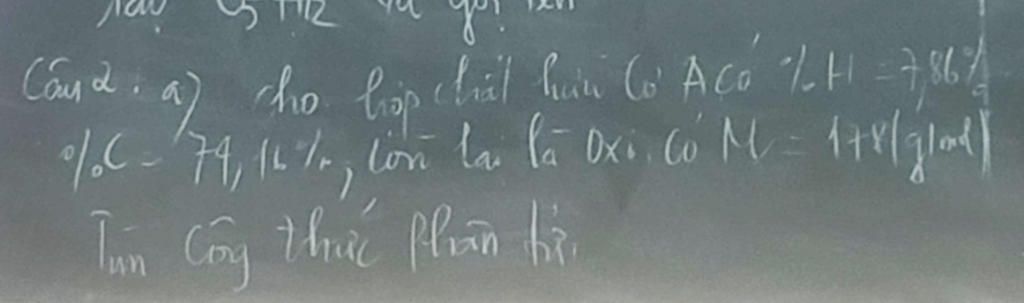 và gọi tên
Câu 2. a) cho hợp chất hữu cơ A có %H = 7,86%
%C = 74,16%, còn lại là oxi. Có M = 178 (g/mol)
Tìm công thức phân tử.